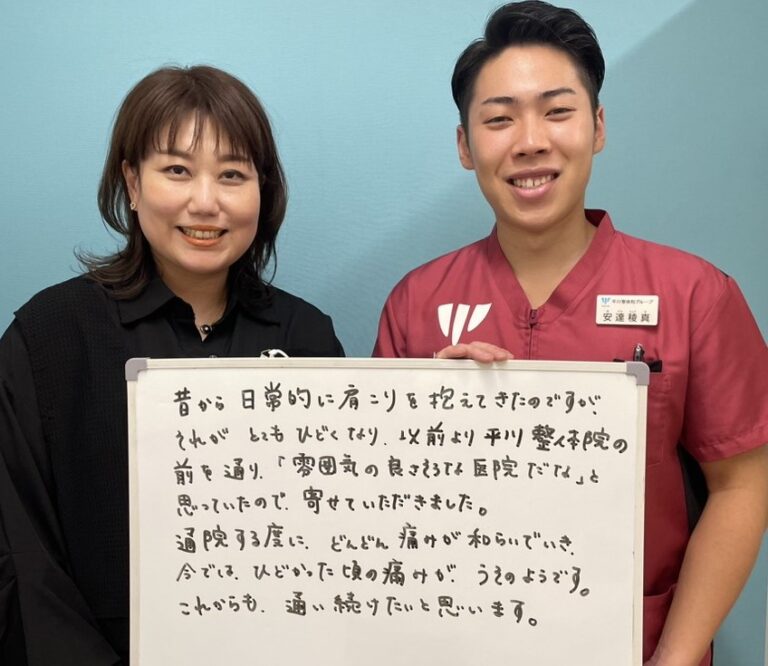 平川整体院グループ
安達稜真
昔から日常的に肩こりを抱えてきたのですが、
それがとてもひどくなり、以前より平川整体院の
前を通り、「雰囲気の良さそうな医院だな」と
思っていたので、寄せていただきました。
通院する度に、どんどん痛みが和らいでいき、
今では、ひどかった頃の痛みが、うそのようです。
これからも、通い続けたいと思います。